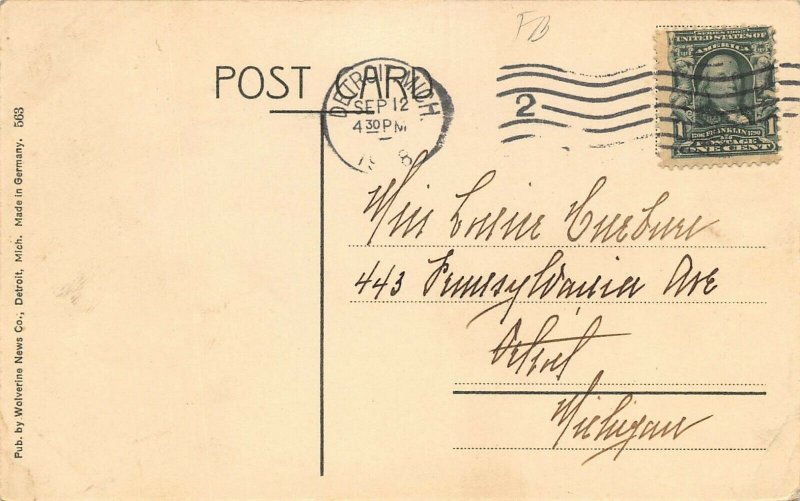 FB
POST CARD
DETROIT, MICH.
SEP 12
4 30 PM
2
SERIES 1902
UNITED STATES OF
AMERICA
1706 FRANKLIN 1790
1 1
POSTAGE
ONE CENT
Miss
443 Pennsylvania Ave
Detroit
Michigan
Pub. by Wolverine News Co., Detroit, Mich. Made in Germany. 563